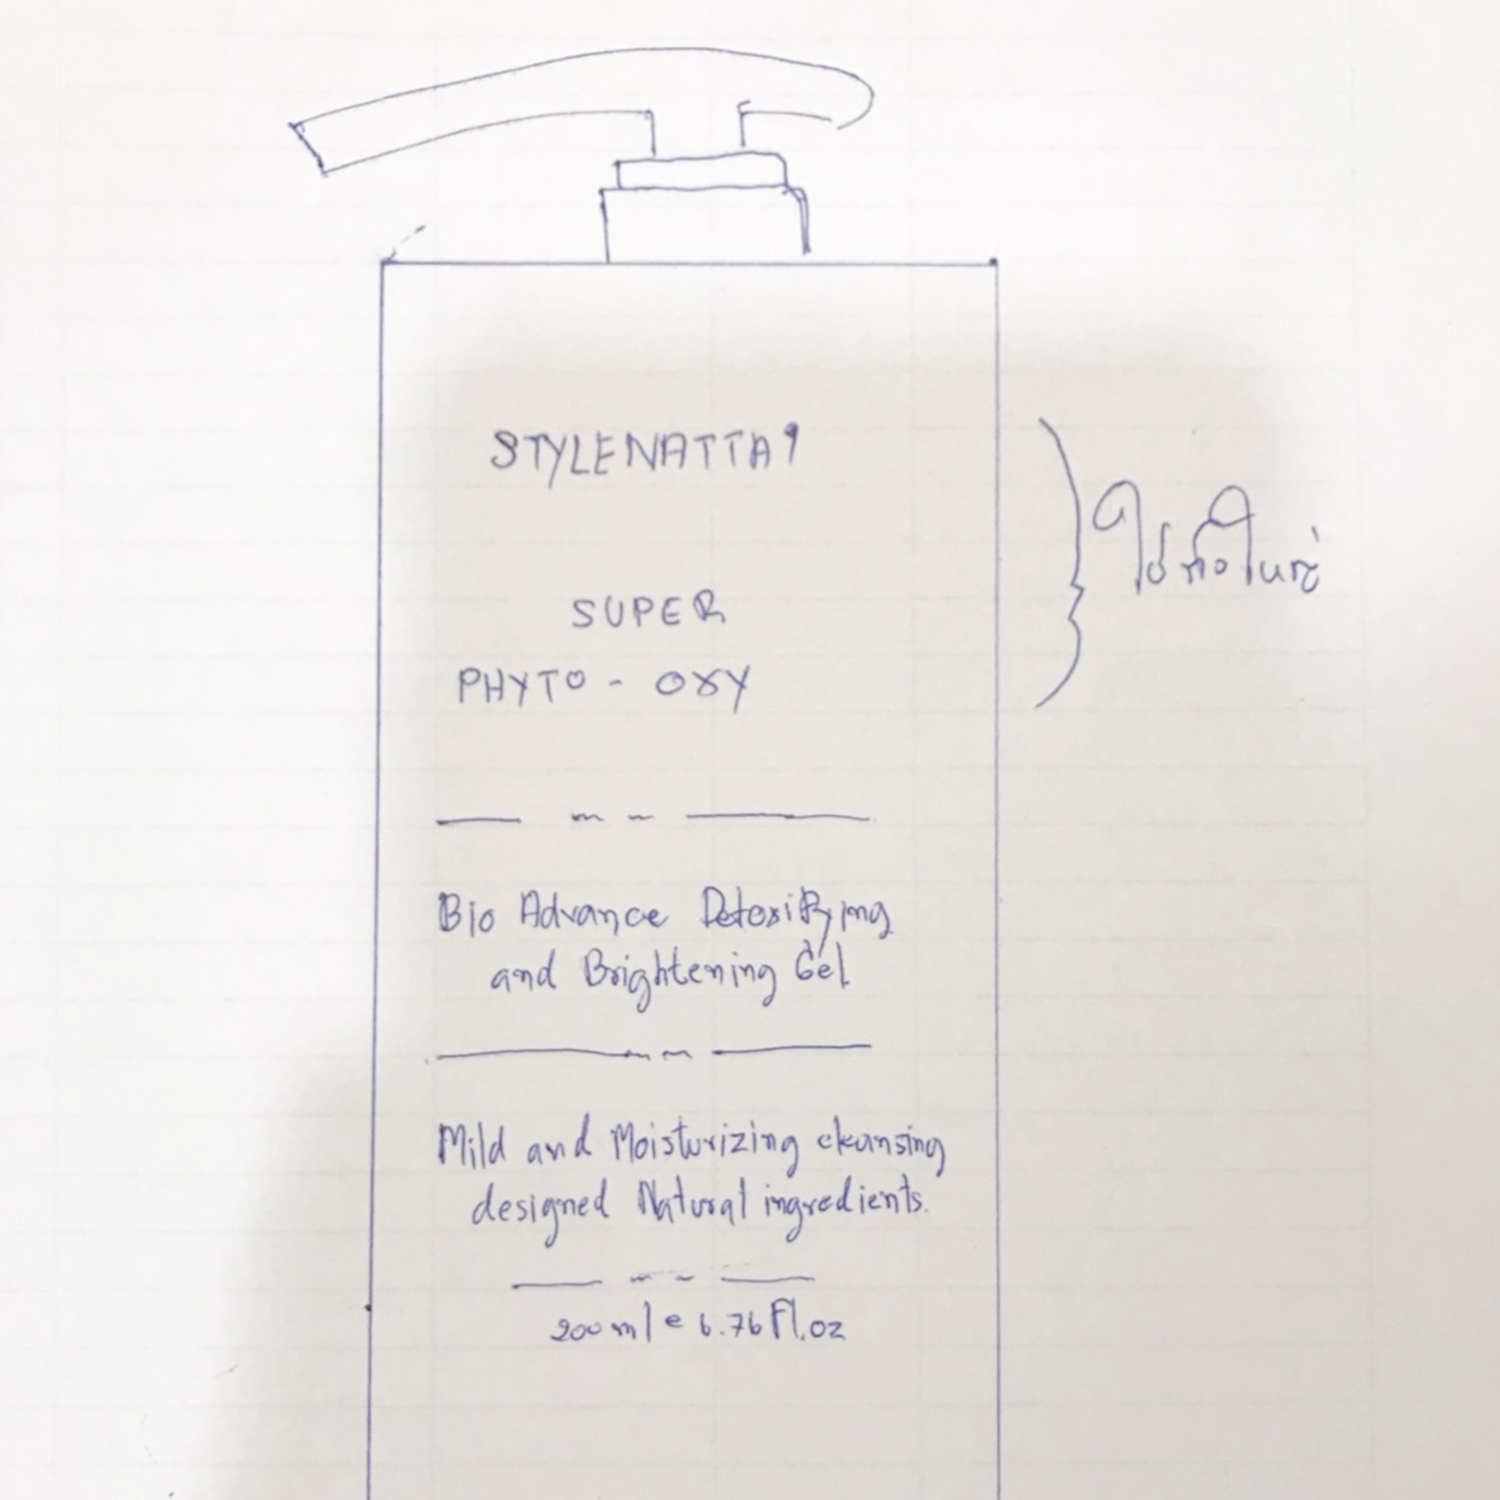 STYLENATTA9
SUPER
PHYTO - OXY
Bio Advance Detoxifying
and Brightening Gel
Mild and Moisturizing cleansing
designed Natural ingredients.
200 ml e 6.76 Fl.oz